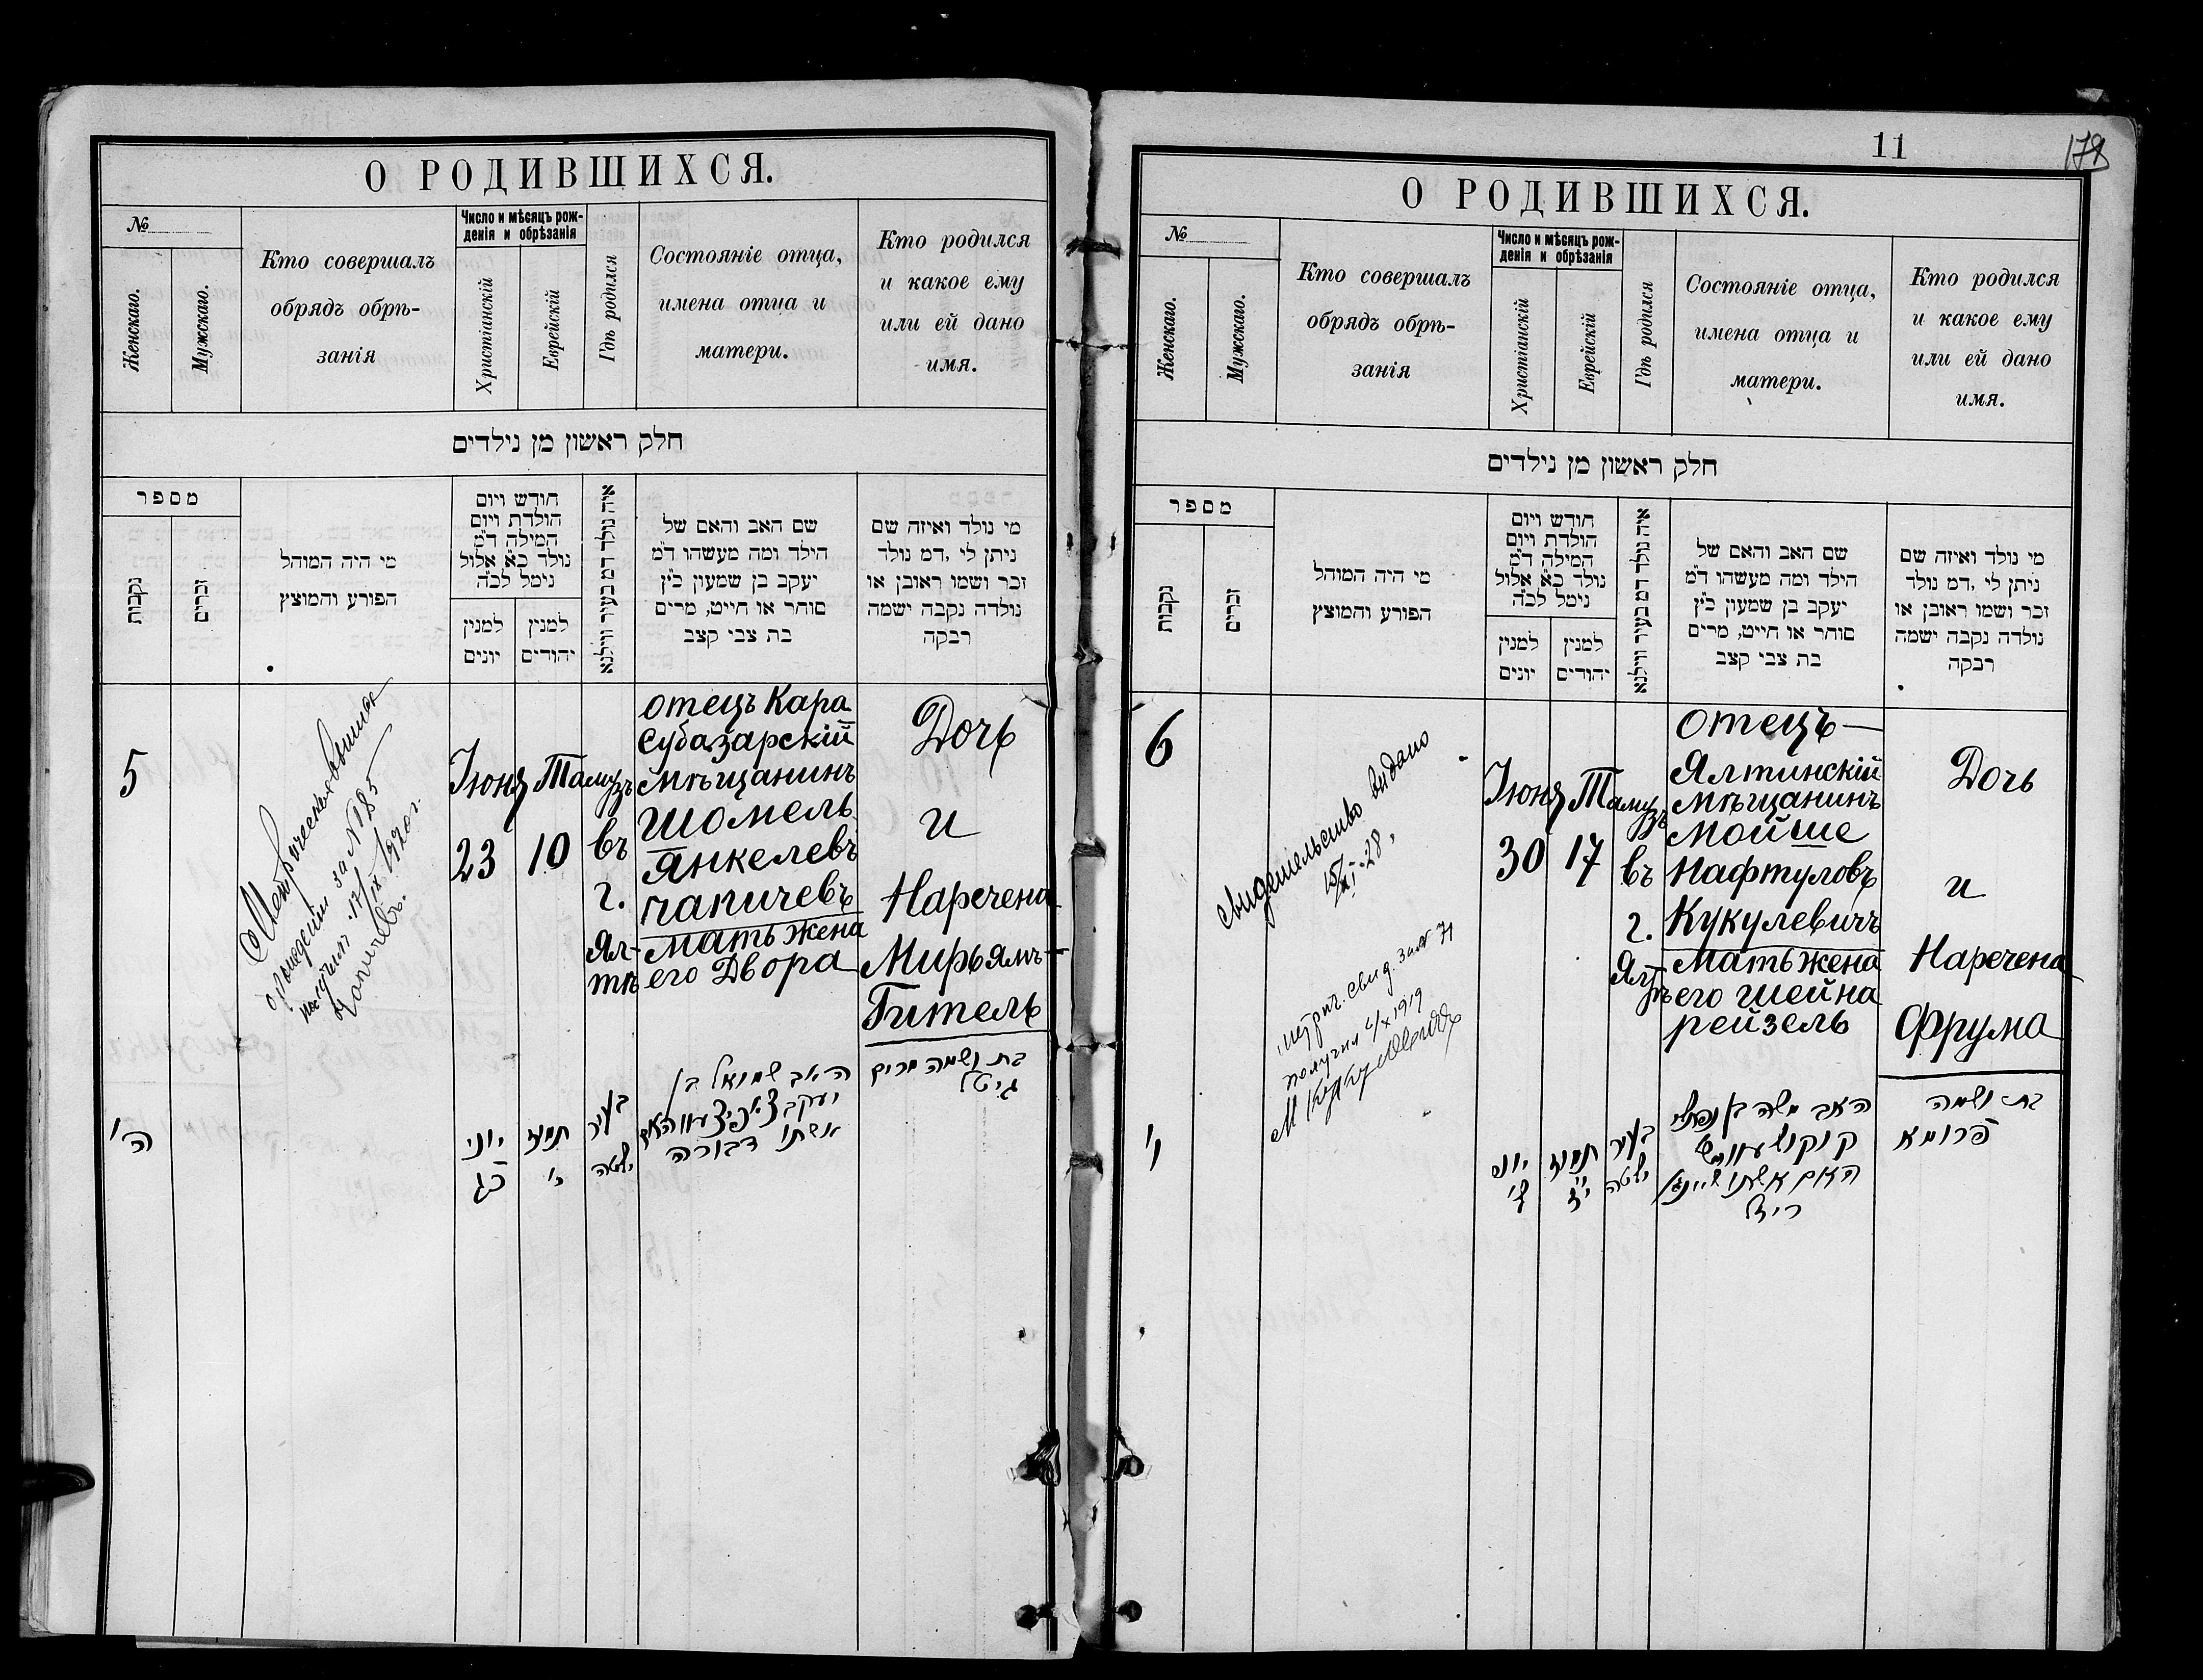 О РОДИВШИХСЯ.
№
Женскаго.
Мужскаго.
Кто совершалъ
обрядъ обрѣ-
занія
Число и мѣсяцъ рож-
денія и обрѣзанія
Христіанскій
Еврейскій
Гдѣ родился
Состояніе отца,
имена отца и
матери.
Кто родился
и какое ему
или ей дано
имя.
חלק ראשון מן נילדים
מספר
נקבות
זכרים
מי היה המוהל
הפורע והמוצץ
חודש ויום
הולדת ויום
המילה ד"מ
נולד כ"א אלול
נימל לכ"ה
למנין
יונים
למנין
יהודים
איה נולד דמ בעיר ווילנא
שם האב והאם של
הילד ומה מעשהו ד"מ
יעקב בן שמעון כ"ץ
סוחר או חייט, מרים
בת צבי קצב
מי נולד ואיזה שם
ניתן לי ,דמ נולד
זכר ושמו ראובן או
נולדה נקבה ישמה
רבקה
5
Метрическая выпись
о рождении за № 185
получил 17/IX 1920 г.
Чапичевъ.
Іюня
23
Тамузъ
10
въ
г.
Ял-
тѣ
отецъ Кара
субазарскій
мѣщанинъ
Шомель
Янкелевъ
Чапичевъ
Мать жена
его Двора
Дочь
и
Наречена
Мирьямъ-
Гитель
ה'
יוני
כג
תמוז
י'
בעיר
יאלטה
האב שמואל בן
יעקב צאפיצעוו והאם
אשתו דבורה
בת ושמה מרים
גיטל
11
178
О РОДИВШИХСЯ.
№
Женскаго.
Мужскаго.
Кто совершалъ
обрядъ обрѣ-
занія
Число и мѣсяцъ рож-
денія и обрѣзанія
Христіанскій
Еврейскій
Гдѣ родился
Состояніе отца,
имена отца и
матери.
Кто родился
и какое ему
или ей дано
имя.
חלק ראשון מן נילדים
מספר
נקבות
זכרים
מי היה המוהל
הפורע והמוצץ
חודש ויום
הולדת ויום
המילה ד"מ
נולד כ"א אלול
נימל לכ"ה
למנין
יונים
למנין
יהודים
איה נולד דמ בעיר ווילנא
שם האב והאם של
הילד ומה מעשהו ד"מ
יעקב בן שמעון כ"ץ
סוחר או חייט, מרים
בת צבי קצב
מי נולד ואיזה שם
ניתן לי ,דמ נולד
זכר ושמו ראובן או
נולדה נקבה ישמה
רבקה
6
Свидетельство выдано
15/XI-28,
Метрич. свид. за № 71
получил 4/X 1919
Іюня
30
Тамузъ
17
въ
г.
Ялтѣ
отецъ—
Ялтинскій
мѣщанинъ
Мойше
Нафтуловъ
Кукулевичъ
Мать жена
его Шейна
рейзель
Дочь
и
Наречена
Фрума
ו'
יוני
ל'
תמוז
י"ז
בעיר
יאלטה
האב משה בן נפתלי
האם אשתו שיינא
רייזל
בת ושמה
פרומא